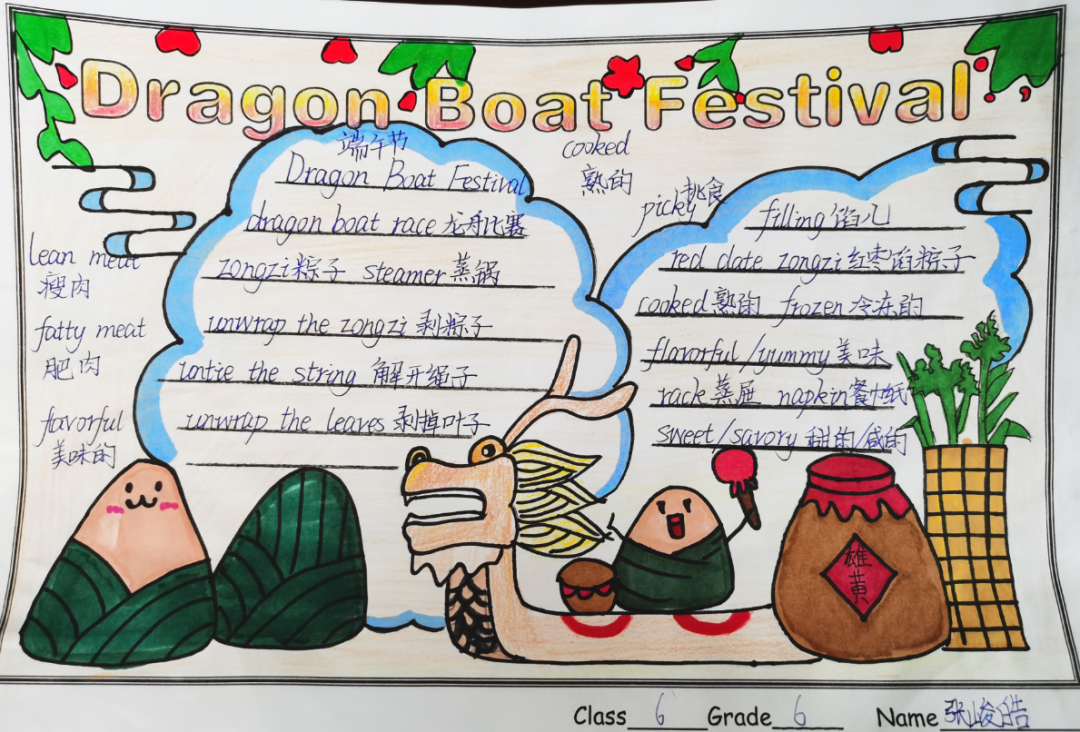 Dragon Boat Festival
端午节
Dragon Boat Festival
dragon boat race 龙舟比赛
zongzi 粽子 steamer 蒸锅
unwrap the zongzi 剥粽子
untie the string 解开绳子
unwrap the leaves 剥掉叶子
lean meat
瘦肉
fatty meat
肥肉
flavorful
美味的
cooked
熟的
picky 挑食
filling 馅儿
red date zongzi 红枣馅粽子
cooked 熟的 frozen 冷冻的
flavorful/yummy 美味
rack 蒸屉 napkin 餐巾纸
sweet/savory 甜的/咸的
雄黄
Class 6 Grade 6 Name 张峻皓